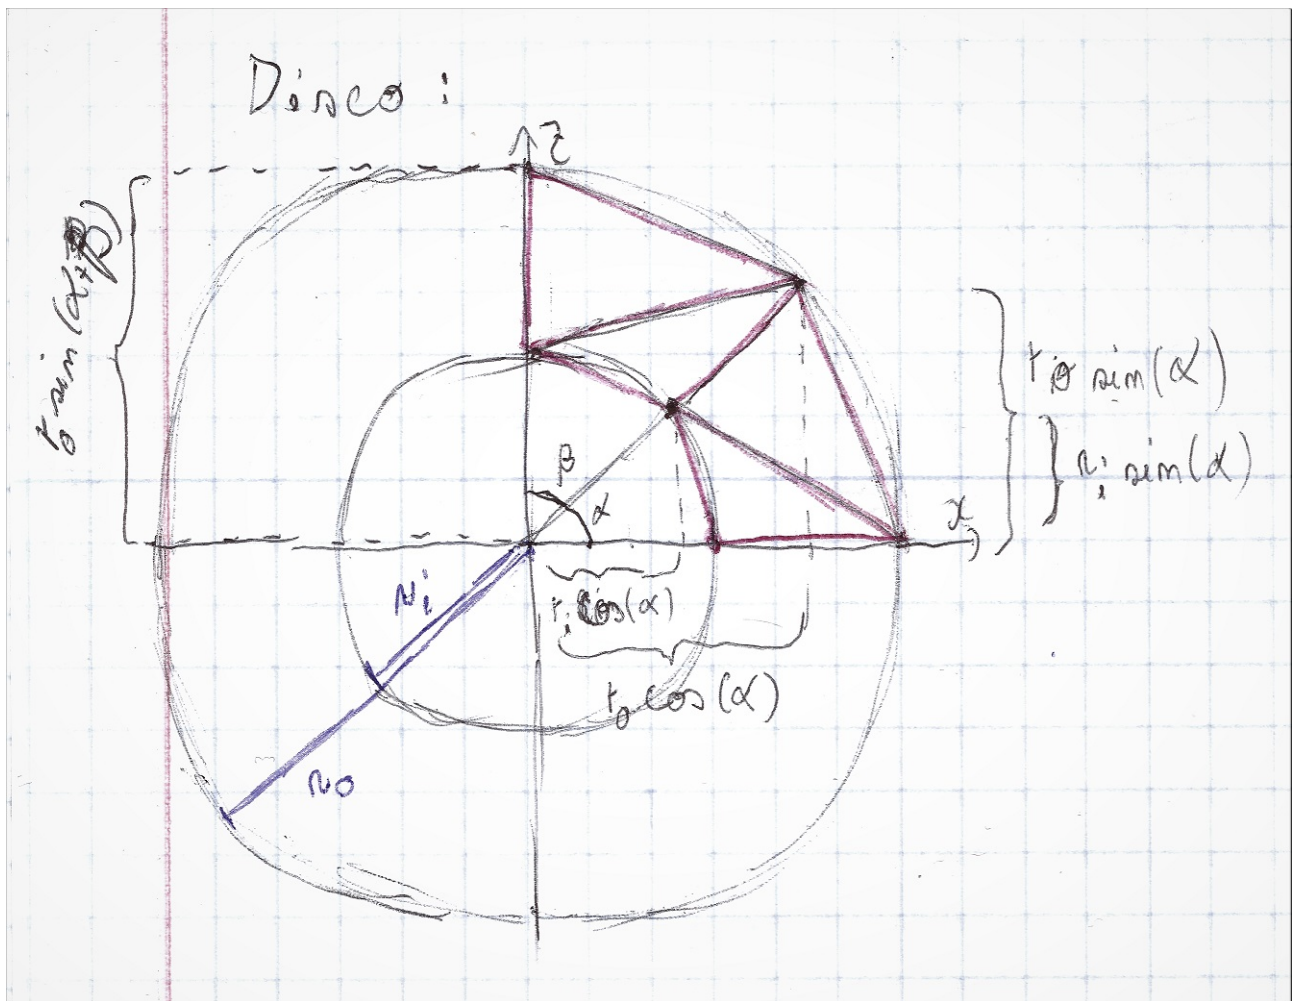 Disco:
z
r₀ sin(α+β)
r₀ sin(α)
rᵢ sin(α)
β
α
x
rᵢ
rᵢ cos(α)
r₀ cos(α)
r₀